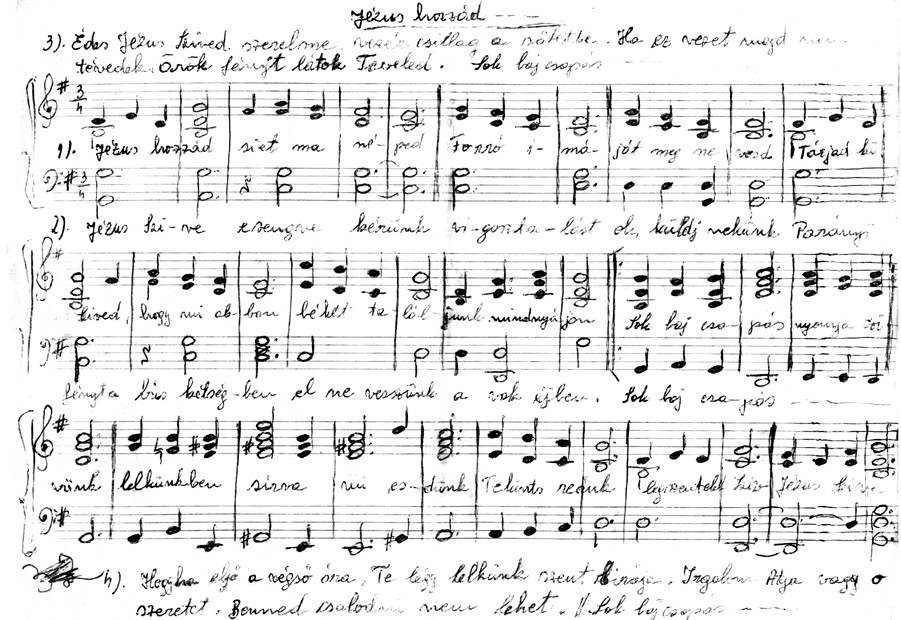 Jézus hozzád
3). Édes Jézus Szived szerelme vezér csillag a sötétbe. Ha ez vezet majd nem
tévedek Örök fényt látok Teveled. Sok baj csapás
1). Jézus hozzád siet ma né-ped Forró i-má-ját meg ne vesd Tárjad ki
2). Jézus Szi-ve esengve kérünk vi-gaszta-lást ok küldj nekünk Parányi
Szived, hogy mi ab-ban békét ta lál-junk mindnyá-jan Sok baj csa-pás nyomja szi
fényt a bús kétség-ben el ne vesszünk a vak éjben. Sok baj csa-pás
vünk lelkünkben sirva mi es-dünk Tekints reánk legszentebb Sziv Jézus szive
4). Hogyha eljő a végső óra, Te légy lelkünk szent birája. Irgalom Atja vagy o
szeretet. Benned csalodni nem lehet. Sok baj csapás